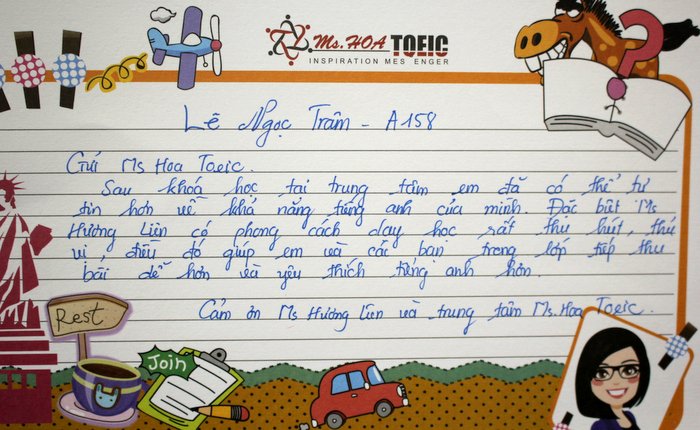 Ms. HOA TOEIC
INSPIRATION MES ENGER
Lê Ngọc Trâm - A158
Gửi Ms Hoa Toeic.
Sau khóa học tại trung tâm em đã có thể tự
tin hơn về khả năng tiếng anh của mình. Đặc biệt Ms
Hương Liên có phong cách dạy học rất thu hút, thú
vị, điều đó giúp em và các bạn trong lớp tiếp thu
bài dễ hơn và yêu thích tiếng anh hơn.
Cảm ơn Ms Hương Liên và trung tâm Ms. Hoa Toeic.
Rest
Join